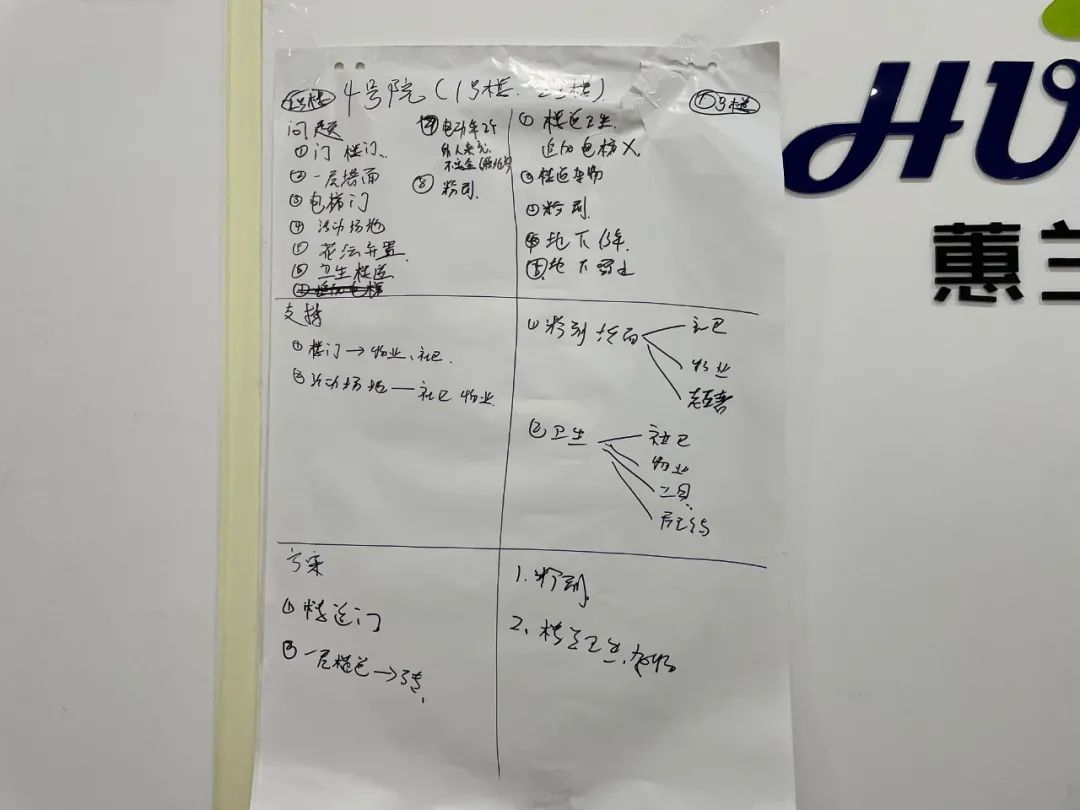 4号院(1号楼.
问题
①门 楼门.
②一层墙面
③电梯门
④活动场地
⑤花坛弃置
⑥卫生楼道
电动车
外人来充
不安全
⑧粉刷.
①楼道卫生.
电梯X.
楼道杂物
粉刷.
地下停车.
地下
支持
①楼门→物业、社区.
②活动场地—社区 物业
①粉刷 墙面
社区
物业
志愿者
②卫生
社区
物业
工具
方案
①楼道门
②一层楼道→
1.粉刷
2.楼道卫生.杂物
HU
蕙兰